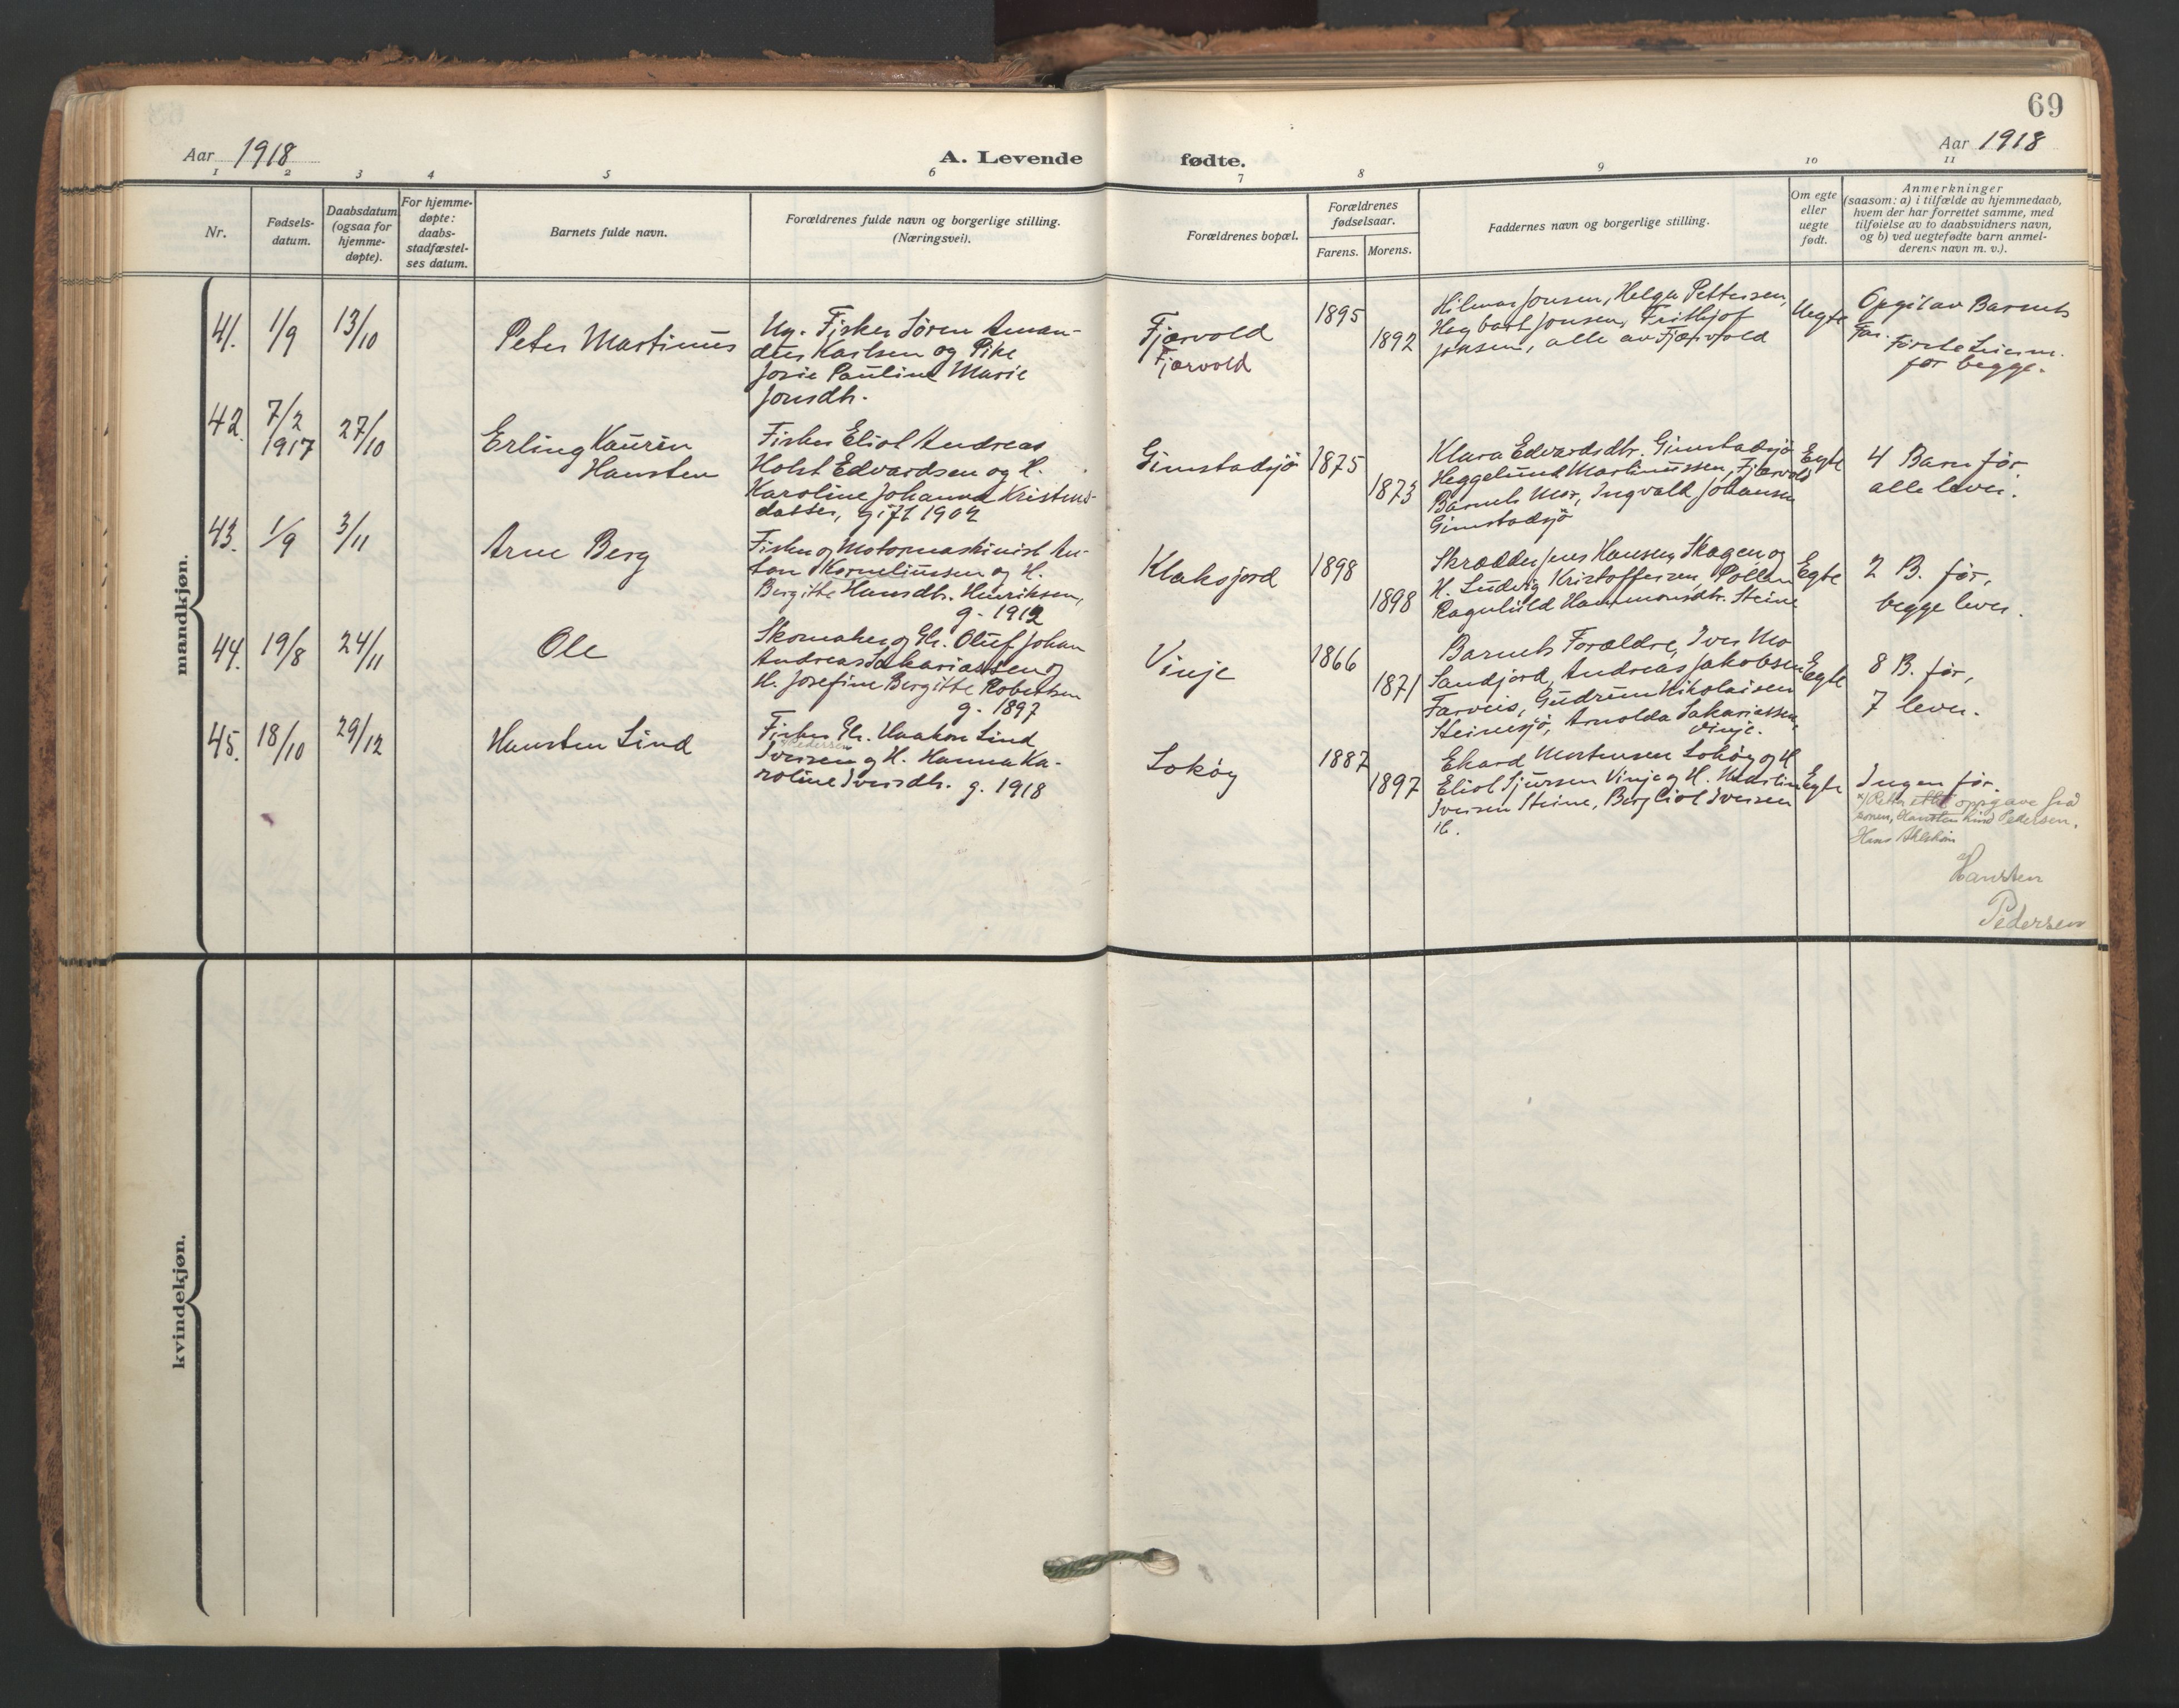 69
Aar 1918
A. Levende
fødte.
Aar 1918
1
2
3
4
5
6
7
8
9
10
11
Nr.
Fødsels-
datum.
Daabsdatum
(ogsaa for
hjemme-
døpte).
For hjemme-
døpte:
daabs-
stadfæstel-
ses datum.
Barnets fulde navn.
Forældrenes fulde navn og borgerlige stilling.
(Næringsvei).
Forældrenes bopæl.
Forældrenes
fødselsaar.
Farens.
Morens.
Faddernes navn og borgerlige stilling.
Om egte
eller
uegte
født.
Anmerkninger
(saasom: a) i tilfælde av hjemmedaab,
hvem der har forrettet samme, med
tilføielse av to daabsvidners navn,
og b) ved uegtefødte barn anmel-
derens navn m. v.).
mandkjøn.
41.
1/9
13/10
Peter Martinus
Ug. Fisker Søren Aman-
dus Karlsen og Pike
Josie Pauline Marie
Jonsdtr.
Fjærvold
Fjærvold
1895
1892
Hilmar Jonsen, Helga Pettersen,
Hegbart Jonsen, Frithjof
Jonsen, alle av Fjærvold
Uegte
Opgit av Barnets
Far.
Første Leierm.
for begge.
42.
7/2
1917
27/10
Erling Kaurin
Hansten
Fisker Eliot Andreas
Holst Edvardsen og H.
Karoline Johanna Kristens-
datter, gift 1902
Gimstadsjö
1875
1873
Klara Edvardsdtr. Gimstadsjö
Heggelund Martinussen, Fjærvold
Barnets Mor, Ingvald Johansen
Gimstadsjö
Egte
4 Barn før
alle lever.
43.
1/9
3/11
Arne Berg
Fisker og Motormaskinist An-
ton Korneliussen og H.
Bergitte Hansdtr. Henriksen,
g. 1912
Klaksjord
1898
1898
Skrædder Jens Hansen, Skagen og
H. Ludvig Kristoffersen, Pollen
Ragnhild Hammonsdtr. Steine
Egte
2 B. før,
begge lever.
44.
19/8
24/11
Ole
Skomaker og Gbr. Oluf Johan
Andreas Sakariassen og
H. Josefine Bergitte Robertsen
g. 1897
Vinje
1866
1871
Barnets Forældre, Iver Mo
Sandjord, Andreas Jakobsen
Farveis, Gudrun Nikolaisen
Steinesjö, Arnolda Sakariassen,
Vinje.
Egte
8 B. før,
7 lever.
45.
18/10
29/12
Hansten Lind
Fisker Gbr. Haakon Lind
Pedersen
Iversen og H. Hanna Ka-
roline Iversdtr. g. 1918
Lokøy
1887
1897
Ekard Mortensen Lokøy og H
Eliot Sjursen Vinje og H. Martin
Iversen Steine, Bergliot Iversen
H.
Egte
Ingen før.
x) Rettet etter oppgave fra
sonen, Hansten Lind Pedersen.
Hansten
Pedersen
kvindekjøn.